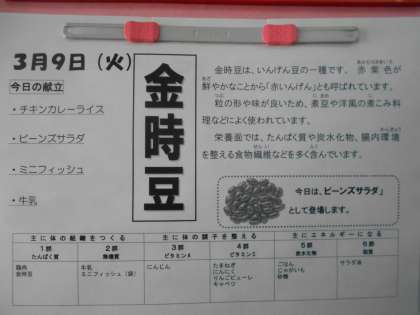 3月9日（火）
今日の献立
・チキンカレーライス
・ビーンズサラダ
・ミニフィッシュ
・牛乳
金時豆
金時豆は、いんげん豆の一種です。赤紫色が
鮮やかなことから「赤いんげん」とも呼ばれています。
粒の形や味が良いため、煮豆や洋風の煮こみ料
理などによく使われています。
栄養面では、たんぱく質や炭水化物、腸内環境
を整える食物繊維などを多く含んでいます。
今日は、ビーンズサラダ」
として登場します。
主に体の組織をつくる 主に体の調子を整える 主にエネルギーになる
1群 2群 3群 4群 5群 6群
たんぱく質 無機質 ビタミンA ビタミンC 炭水化物 脂質
鶏肉 牛乳 にんじん たまねぎ ごはん サラダ油
金時豆 ミニフィッシュ（袋） にんにく じゃがいも
りんごピューレ 砂糖
キャベツ